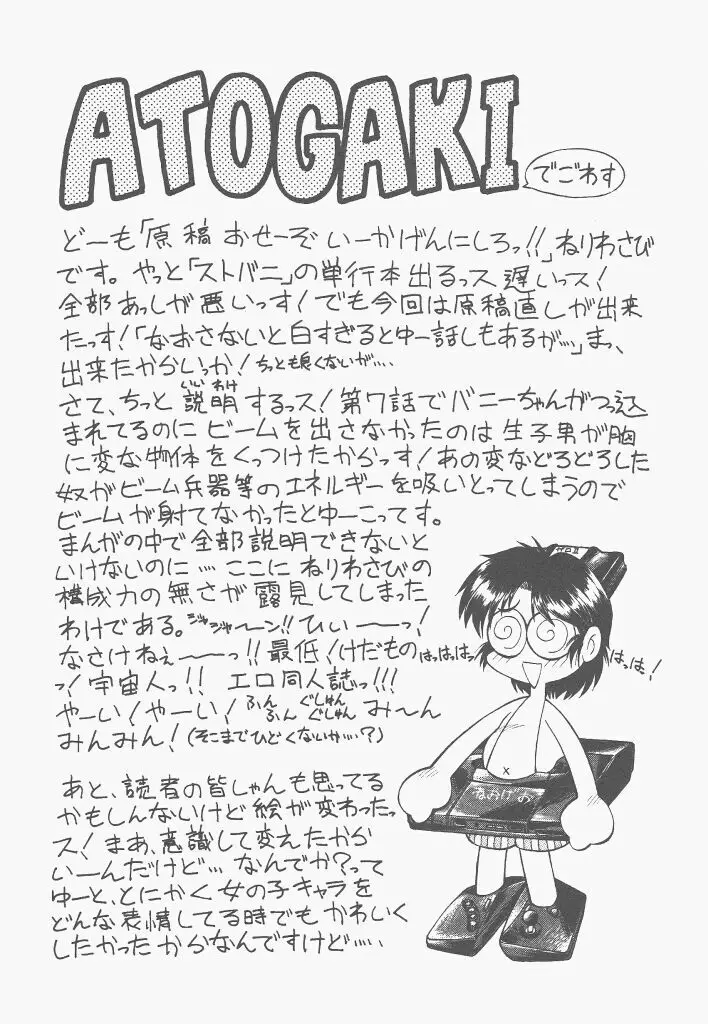 ATOGAKI
でごわす
どーも「原稿おせーぞいーかげんにしろっ!!」ねりわさび
です。やっと「ストバニ」の単行本出るっス遅いっス!
全部あっしが悪いっす!でも今回は原稿直しが出来
たっす!「なおさないと白すぎるとゆー話しもあるが…」まっ、
出来たからいっか!ちっとも良くないが….
さて、ちっと説明するっス!第7話でバニーちゃんがつっ込
いいわけ
まれてるのにビームを出さなかったのは生子男が胸
に変な物体をくっつけたからっす!あの変などろどろした
奴がビーム兵器等のエネルギーを吸いとってしまうので
ビームが射てなかったとゆーこってす。
まんがの中で全部説明できないと
いけないのに…ここにねりわさびの
構成力の無さが露見してしまった
わけである。ジャジャ〜ーン!!ひぃ〜ーっ!
なさけねぇ〜ーっ!!最低!けだもの
っ!宇宙人っ!!エロ同人誌っ!!!
やーい!やーい!ふんふんぐしゅんぐしゅんみ〜ん
みんみん!(そこまでひどくないか…?)
あと、読者の皆しゃんも思ってる
かもしんないけど絵が変わったっ
ス!まあ、意識して変えたから
いーんだけど…なんでか?って
ゆーと、とにかく女の子キャラを
どんな表情してる時でもかわいく
したかったからなんですけど….
はっはっはっ
はっは!
ねおげお